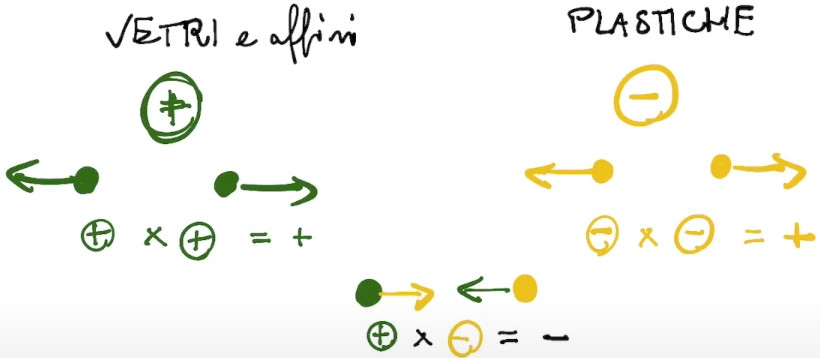 VETRI e affini
PLASTICHE
+
-
+ x + = +
- x - = +
+ x - = -